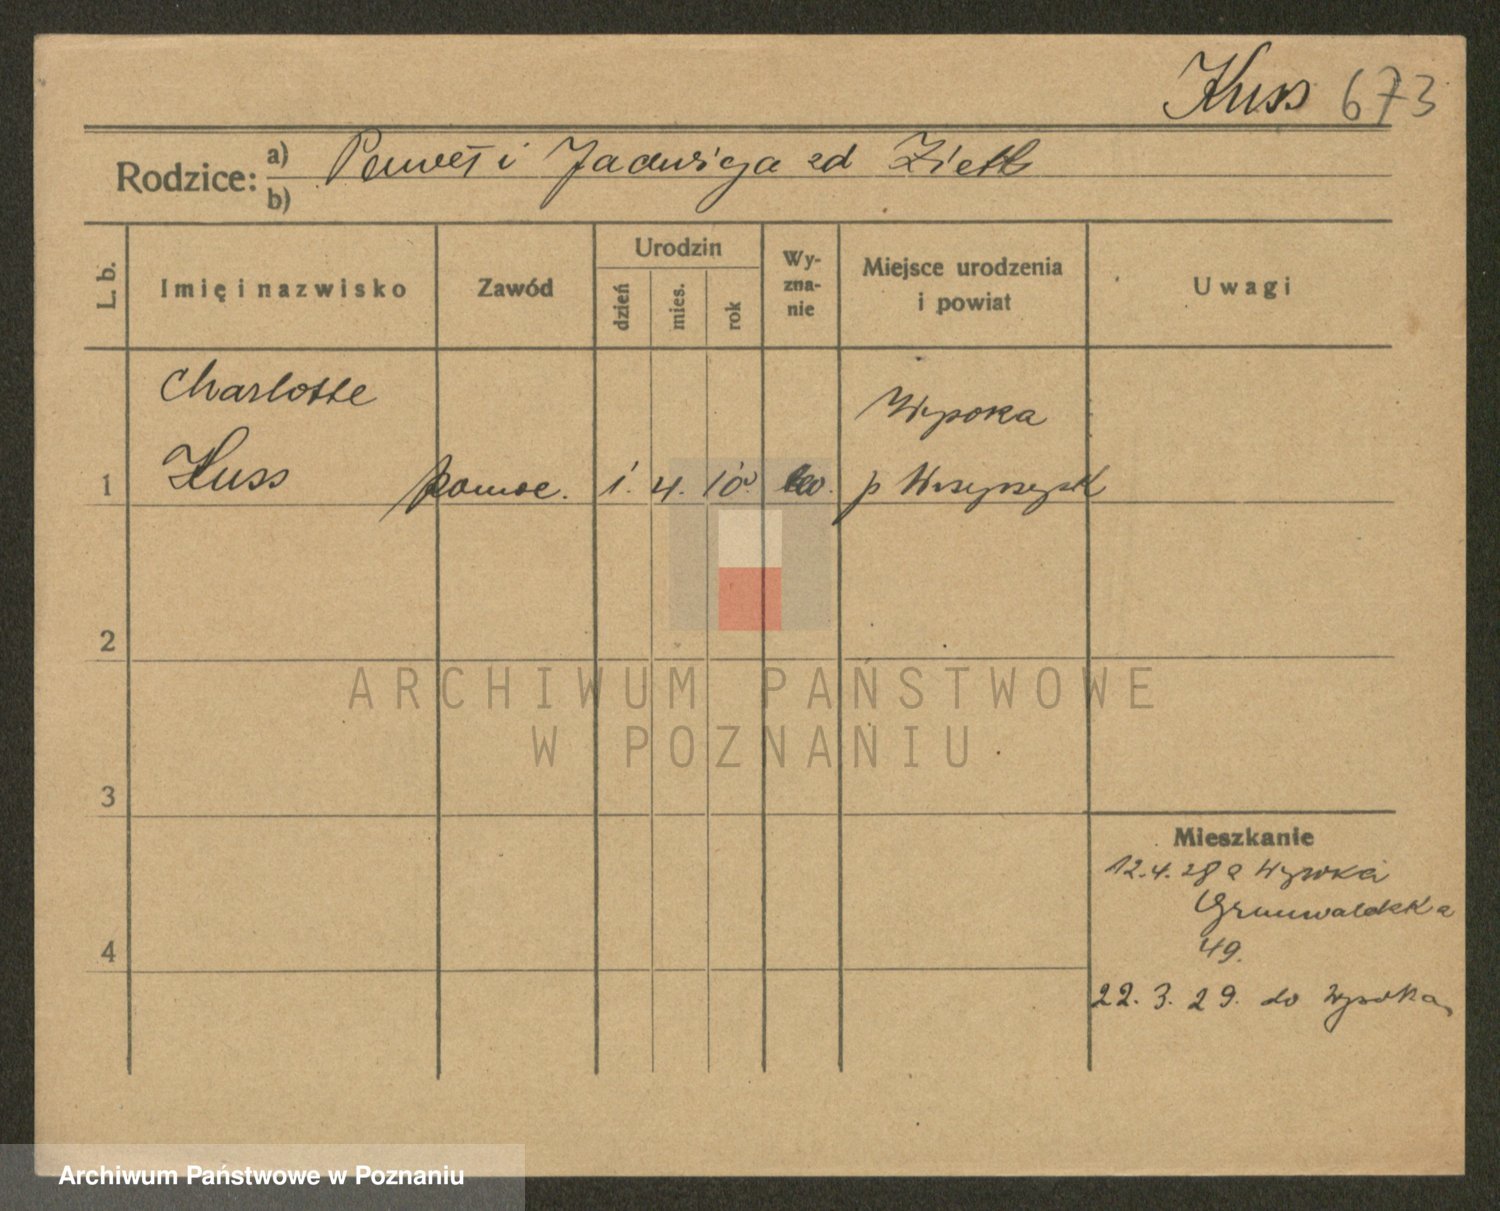 Kuss 673
Rodzice: a) Paweł i Jadwiga zd Zietk
b)
L. b.
Imię i nazwisko
Zawód
Urodzin
dzień
mies.
rok
Wy-
zna-
nie
Miejsce urodzenia
i powiat
Uwagi
Charlotte
Wysoka
1 Kuss pomoc. 1. 4. 10 ew. p Wyrzysk
2
3
4
Mieszkanie
12.4.28 z Wysoka
Grunwaldzka
49.
22.3.29. do Wysoka
ARCHIWUM PAŃSTWOWE
W POZNANIU
Archiwum Państwowe w Poznaniu